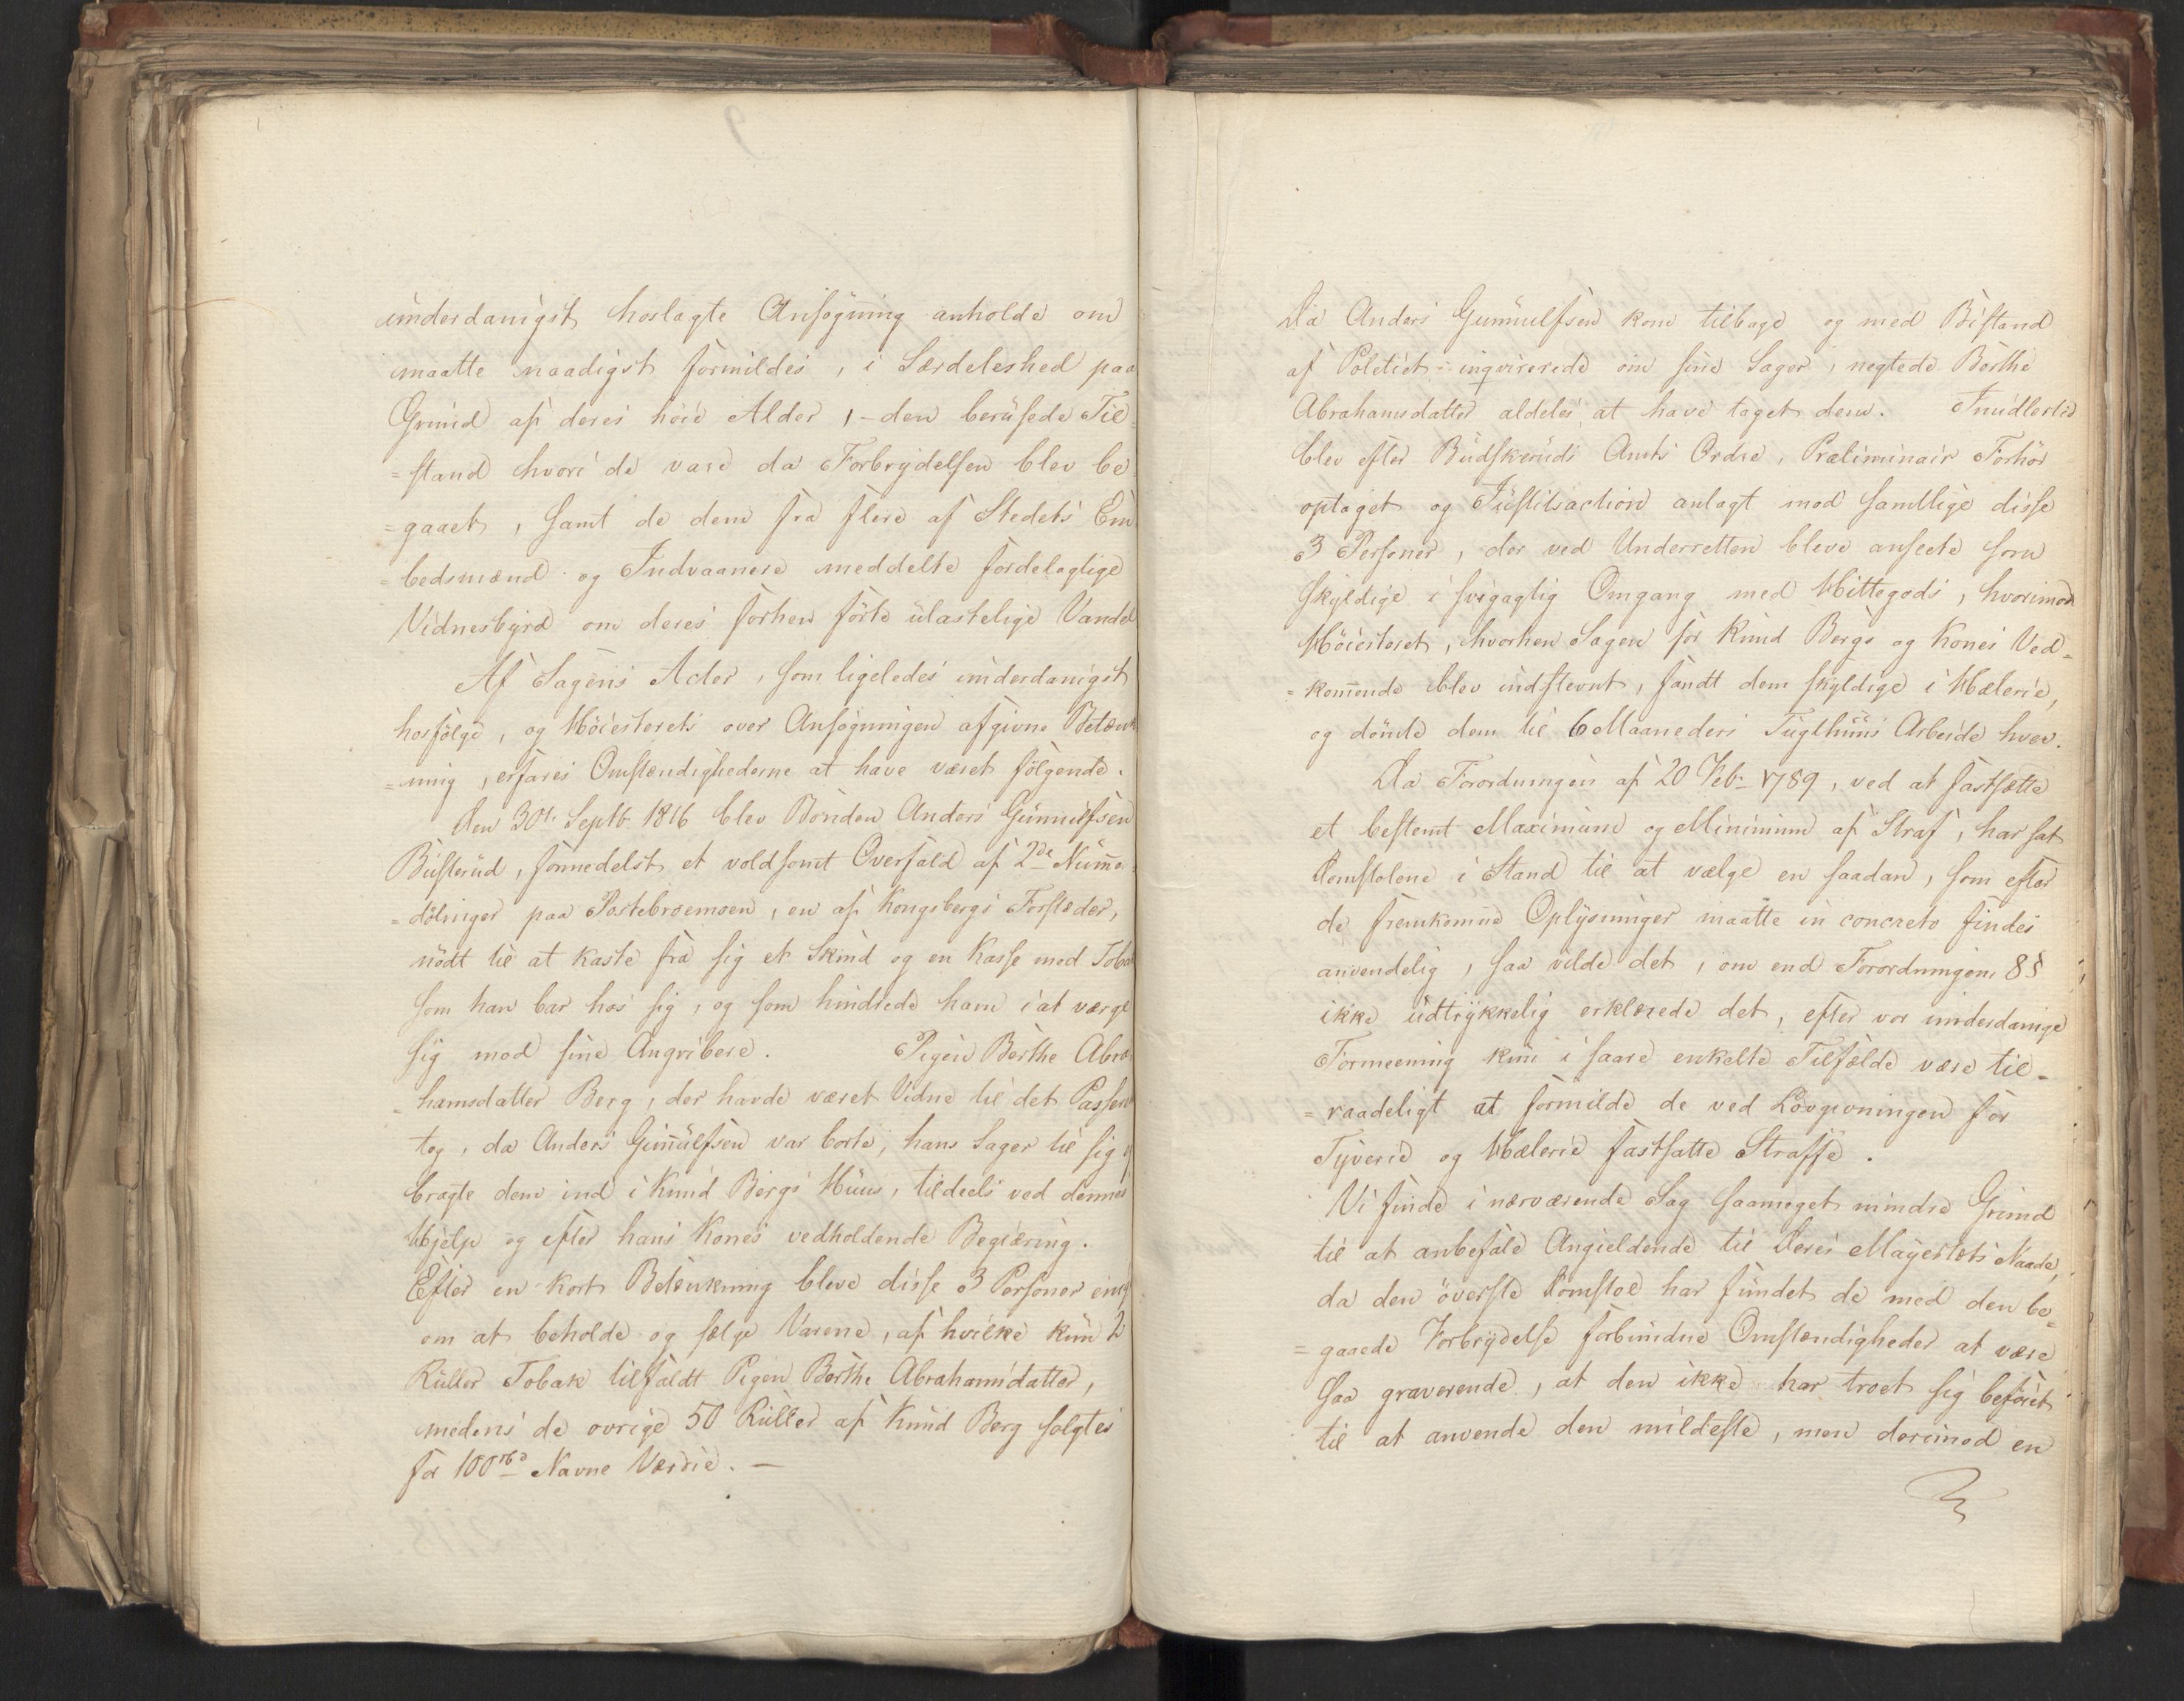 underdanigst hoslagte Ansøgning anholde om
maatte naadigst formildes, i Særdeleshed paa
Grund af deres høie Alder, - den berusede Til
=stand hvori de vare da Forbrydelsen blev be
=gaaet, samt de dem fra flere af Stedets Em
=bedsmænd og Indvaanere meddelte fordelagtige
Vidnesbyrd om deres forhen førte ulastelige Vandel
Af Sagens Acter, som ligeledes underdanigst
hosfølge, og Høiesterets over Ansøgningen afgivne Betænk
=ning, erfares Omstændighederne at have været følgende.
Den 30te Septb. 1816 blev Bonden Anders Gunnulfsen
Busterud, formedelst et voldsomt Overfald af 2de Numme
=dølinger paa Portebroemoen, en af Kongsbergs Forstæder,
nødt til at kaste fra sig et Skind og en Kasse med Toba
som han bar hos sig, og som hindrede ham i at værge
sig mod sine Angribere. Pigen Berthe Abra
=hamsdatter Berg, der havde været Vidne til det Passere
tog, da Anders Gunnulfsen var borte, hans Sager til sig og
bragte dem ind i Knud Bergs Huus, tildeels ved dennes
Hjelp og efter hans Kones vedholdende Begiæring.
Efter en kort Betænkning bleve disse 3 Personer enig
om at beholde og sælge Varene, af hvilke kun 2
Ruller Tobak tilfaldt Pigen Berthe Abrahamsdatter,
medens de øvrige 50 Ruller af Knud Berg solgtes
for 100 rbd Navne Værdie. —
Da Anders Gunnulfsen kom tilbage og med Bistand
af Politiet inqvirerede om sine Sager, negtede Berthe
Abrahamsdatter aldeles at have taget dem. Imidlertid
blev efter Budskeruds Amts Ordre, Præliminair Forhør
optaget og Justitsaction anlagt mod samtlige disse
3 Personer, der ved Underretten bleve anseete som
skyldige i svigagtig Omgang med Hittegods, hvorimod
Høiesteret, hvorhen Sagen for Knud Bergs og Kones Ved=
=kommende blev indstevnt, fandt dem skyldige i Hæleri,
og dømte dem til 6 Maaneders Tugthuus Arbeide hver.
Da Forordningen af 20 Feb. 1789, ved at fastsætte
et bestemt Maximum og Minimum af Straf, har sat
Domstolene i Stand til at vælge en saadan, som efter
de fremkomne Oplysninger maatte in concreto findes
anvendelig, saa vilde det, om end Forordningens 8 §
ikke udtrykkelig erklærede det, efter vor underdanige
Formeening kun i saare enkelte Tilfælde være til=
=raadeligt at formilde de ved Lovgivningen for
Tyverie og Hælerie fastsatte Straffe.
Vi finde i nærværende Sag saameget mindre Grund
til at anbefale Angieldende til Deres Mayestæts Naade,
da den øverste Domstol har fundet de med den be=
=gaaede Forbrydelse forbundne Omstændigheder at være
saa graverende, at den ikke har troet sig beføiet
til at anvende den mildeste, men derimod en